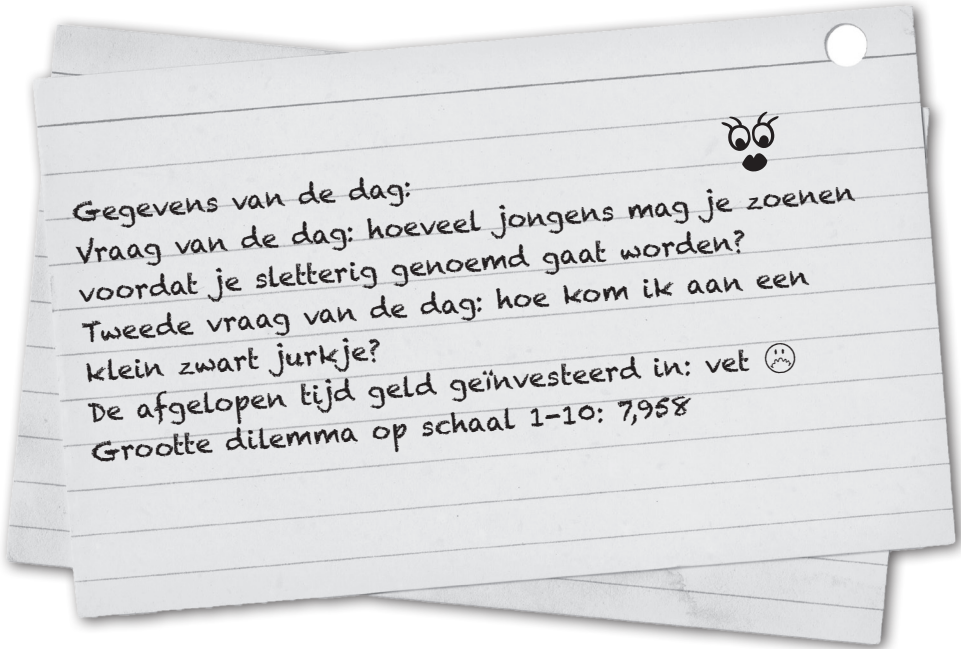 Gegevens van de dag:
Vraag van de dag: hoeveel jongens mag je zoenen
voordat je sletterig genoemd gaat worden?
Tweede vraag van de dag: hoe kom ik aan een
klein zwart jurkje?
De afgelopen tijd geld geïnvesteerd in: vet
Grootte dilemma op schaal 1-10: 7,958